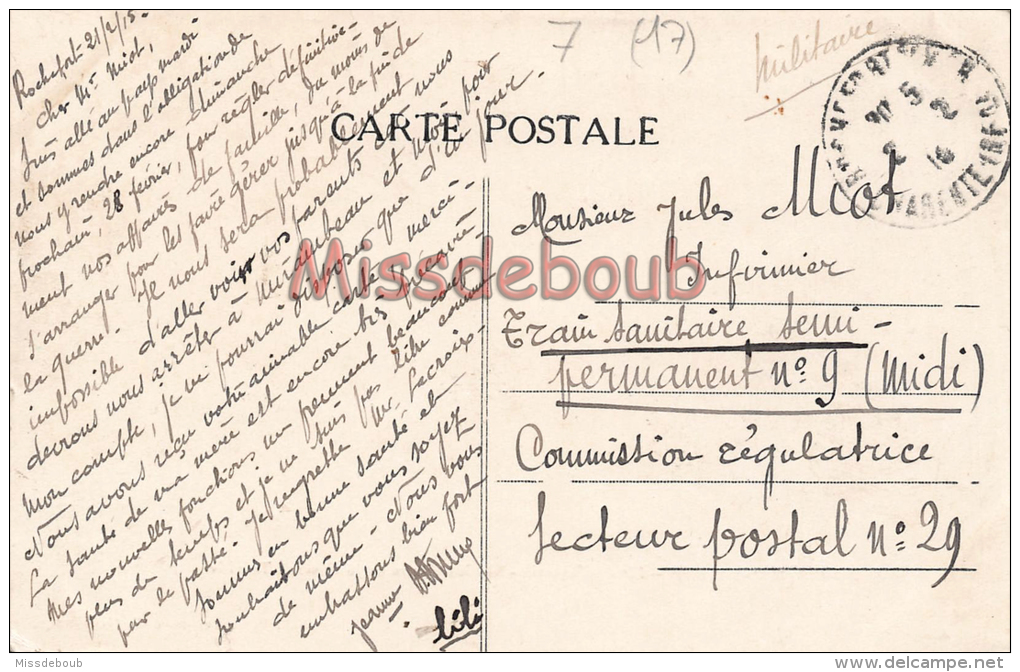 7 (17)
Militaire
CARTE POSTALE
Rochefort 21/2/15-
Cher Mr Miot,
Suis allé au pays mardi
et sommes dans l'obligation de
nous y rendre encore dimanche
prochain, 28 février, pour régler définitive-
ment nos affaires de famille, du moins de
s'arranger pour les faire gérer jusqu'à la fin de
la guerre. Je nous sera probablement
impossible d'aller voir vos parents car nous
devrons nous arrêter à Mirambeau et moi pour
mon compte, je ne pourrai disposer que d'un jour.
Nous avons reçu votre aimable carte, merci.
La santé de ma mère est encore très précaire.
Mes nouvelles fonctions me prennent beaucoup
plus de temps et je ne suis pas libre comme
par le passé. Je regrette Mr Lacroix.
Sommes en bonne santé et
souhaitons que vous soyez
de même. Nous vous
embrassons bien fort
Lili
Monsieur Jules Miot
Infirmier
Train sanitaire semi-
permanent n° 9 (Midi)
Commission régulatrice
Secteur postal n° 29
Missdeboub
Missdeboub
www.delcampe.net